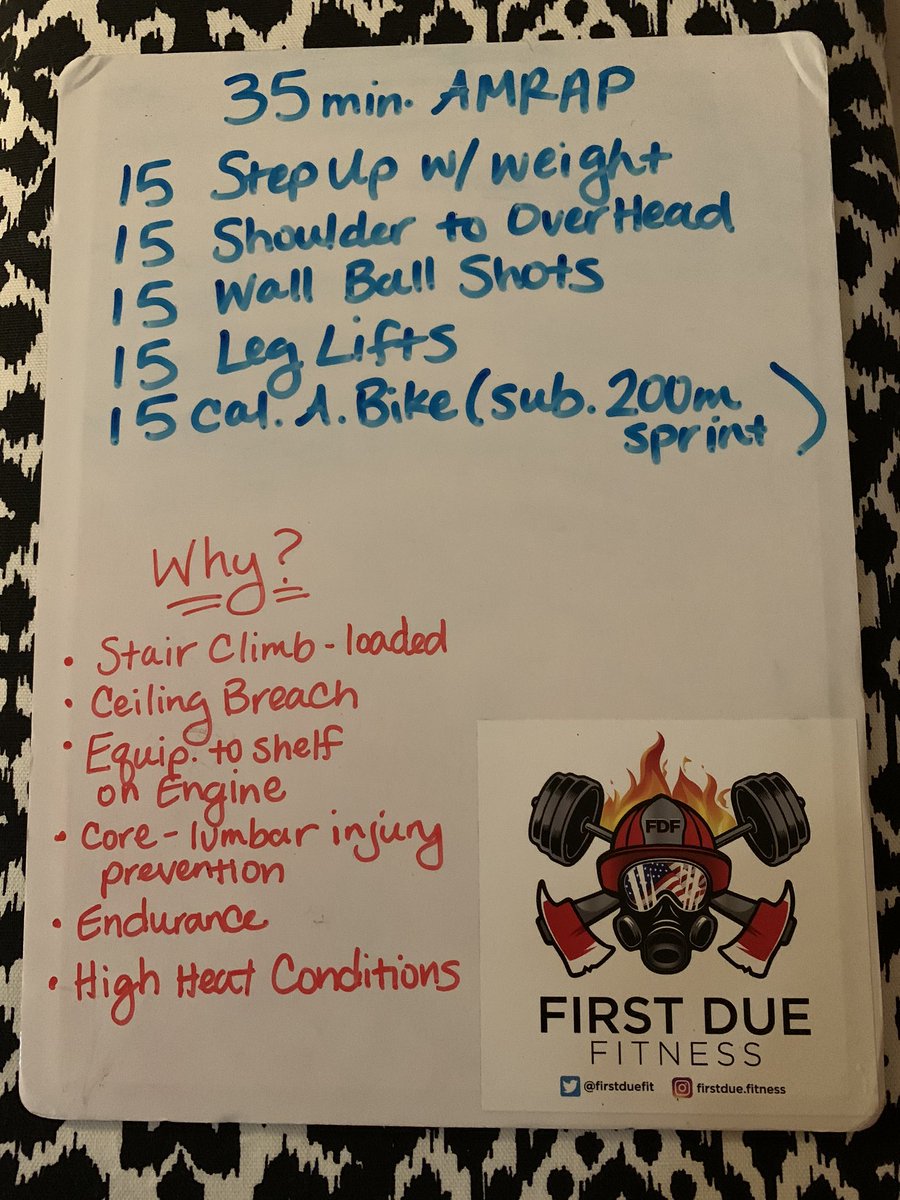 35 min. AMRAP
15 Step Up w/ weight
15 Shoulder to OverHead
15 Wall Ball Shots
15 Leg Lifts
15 Cal. A. Bike (sub. 200m
sprint)
Why?
• Stair Climb - loaded
• Ceiling Breach
• Equip. to shelf
on Engine
• Core - lumbar injury
prevention
• Endurance
• High Heat Conditions
FDF
FIRST DUE
FITNESS
@firstduefit firstdue.fitness